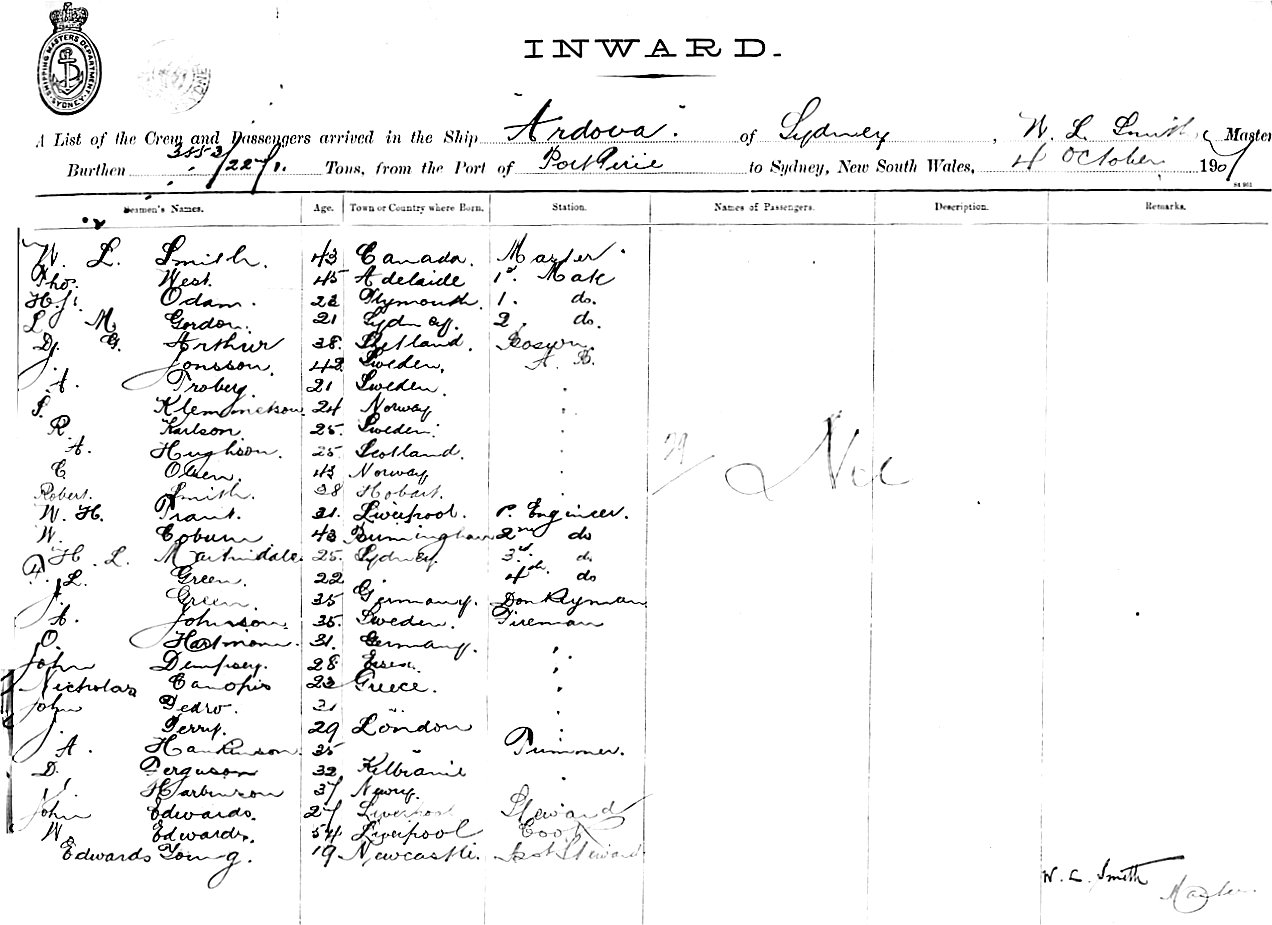 SHIPPING MASTERS DEPARTMENT SYDNEY
INWARD.
A List of the Crew and Passengers arrived in the Ship "Ardova" of Sydney, W. L. Smith, Master
Burthen Tons, from the Port of Port Pirie to Sydney, New South Wales, 4 October 1907
Seamen's Names. Age. Town or Country where Born. Station. Names of Passengers. Description. Remarks.
W. L. Smith. 43 Canada. Master.
Tho. West. 45 Adelaide 1st Mate
H. J. Odam. 22 Plymouth. 1. do.
L. M. Gordon. 21 Sydney. 2 do.
D. G. Arthur 38. Shetland. Boswn.
J. Jonsson. 42 Sweden. A. B.
A. Troberg. 21 Sweden. "
S. Klemmetson. 24 Norway "
R. Karlson 25. Sweden. "
A. Hughson. 25 Scotland. "
C. Olsen. 43 Norway "
Robert. Smith. 38 Hobart. "
Nil
W. H. Trant. 31. Liverpool. 1st Engineer.
W. Coburn 43 Birmingham 2nd do
H. L. Martindale 25. Sydney. 3rd do
F. L. Green. 22 " 4th do
J. Green. 35 Germany. Donkeyman
A. Johnson. 35. Sweden. Fireman
O. Hartmann. 31. Germany. "
John Dempsey. 28 Essex. "
Nicholas Canopis 23 Greece. "
John Pedro. 31 " "
J. Perry. 29 London "
A. Hankinson. 35 " Trimmer.
D. Ferguson 32 "
Harbinson 37 Newry. "
John Edwards. 27 Liverpool Steward
W. Edwards. 54 Liverpool Cook
Edwards Young. 19 Newcastle. Asst Steward
W. L. Smith Master.